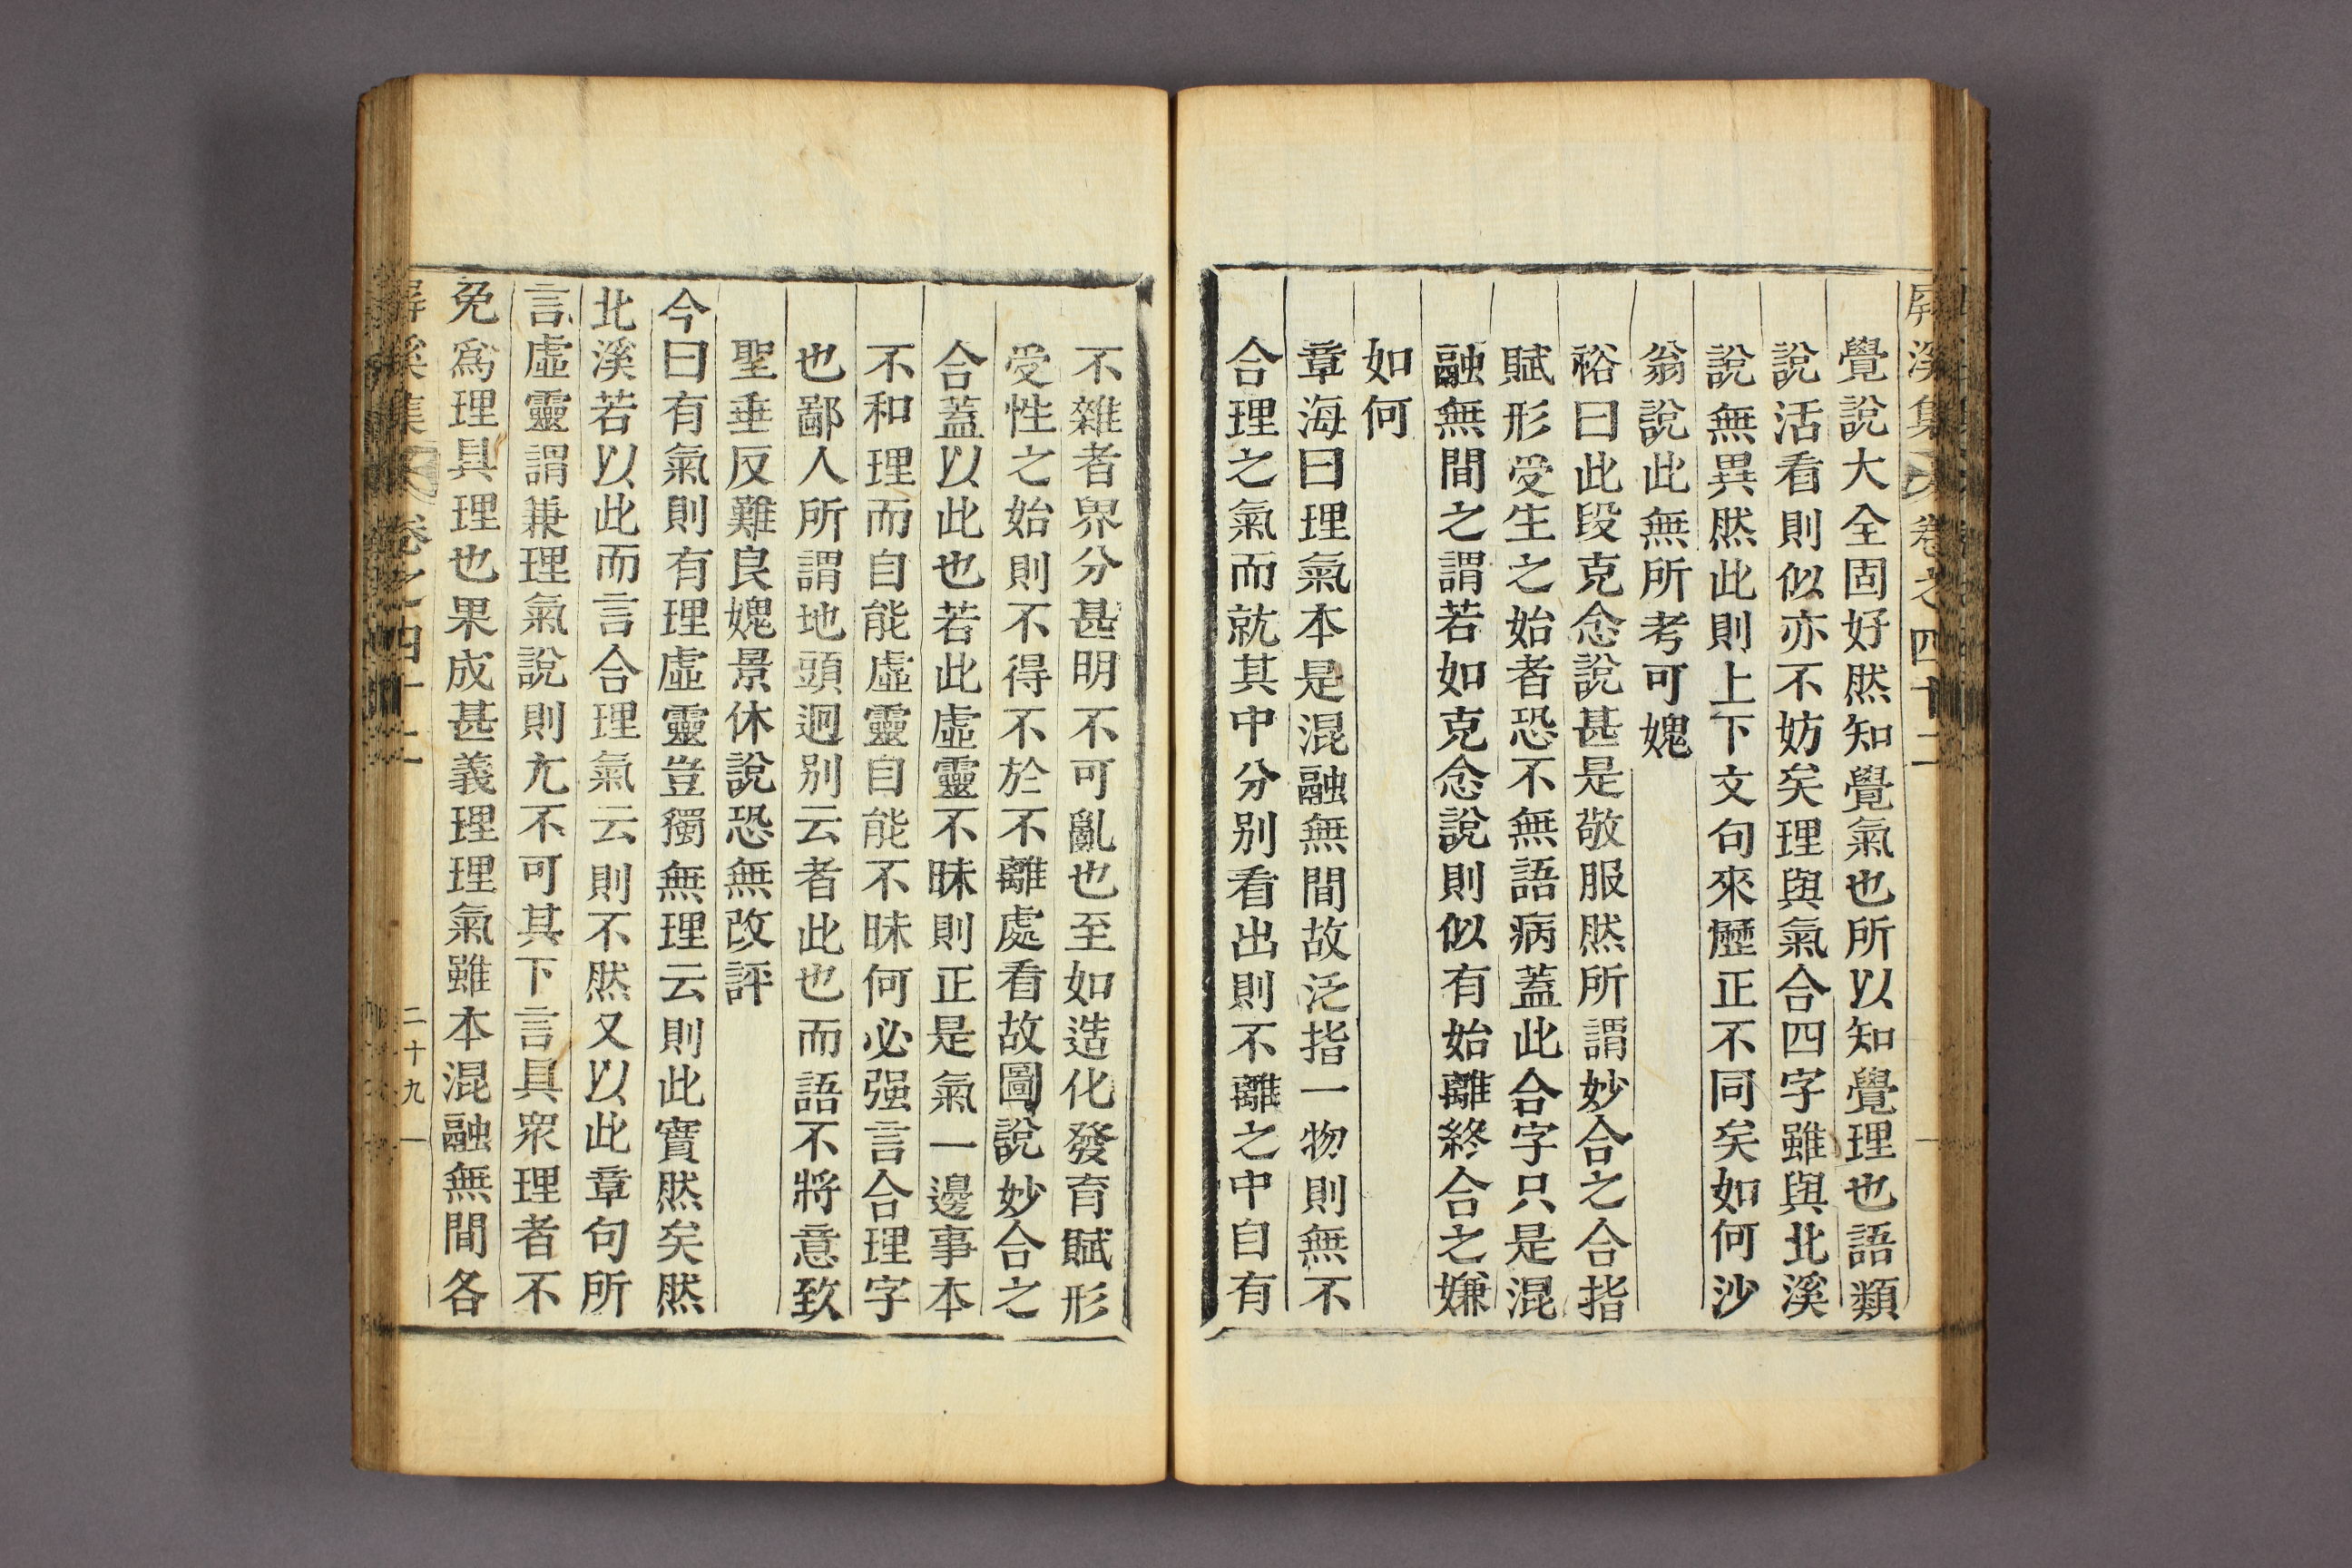 屏溪集 卷之四十二
覺說大全固好然知覺氣也所以知覺理也語類
說活看則似亦不妨矣理與氣合四字雖與北溪
說無異然此則上下文句來歷正不同矣如何沙
翁說此無所考可媿
裕曰此段克念說甚是敬服然所謂妙合之合指
賦形受生之始者恐不無語病蓋此合字只是混
融無間之謂若如克念說則似有始離終合之嫌
如何
章海曰理氣本是混融無間故泛指一物則無不
合理之氣而就其中分別看出則不離之中自有
不雜者界分甚明不可亂也至如造化發育賦形
受性之始則不得不於不離處看故圖說妙合之
合蓋以此也若此虛靈不昧則正是氣一邊事本
不和理而自能虛靈自能不昧何必强言合理字
也鄙人所謂地頭迥别云者此也而語不將意致
聖垂反難良媿景休說恐無改評
今曰有氣則有理虛靈豈獨無理云則此實然矣然
北溪若以此而言合理氣云則不然又以此章句所
言虛靈謂兼理氣說則尤不可其下言具衆理者不
免爲理具理也果成甚義理理氣雖本混融無間各
屏溪集 卷之四十二 二十九